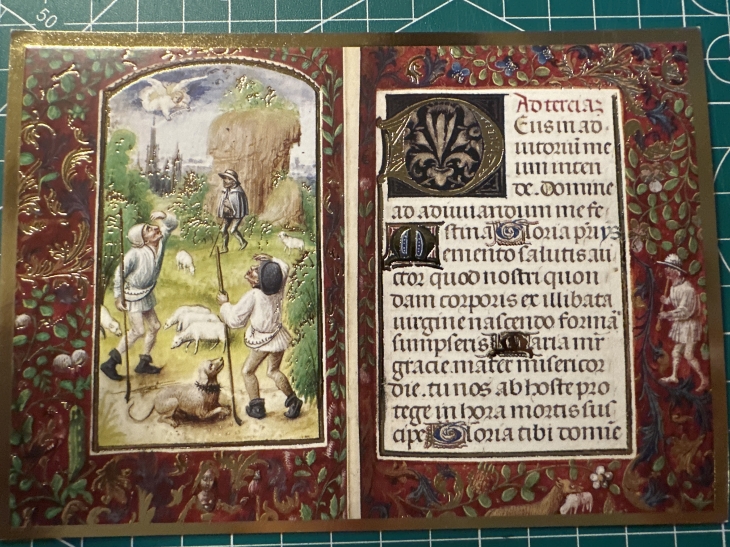 50
Ad terciaz
Eus in ad
iutoriū me
um inten
de. Domine
ad adiuuandum me fe
stina Gloria
Memento salutis au
ctor quod nostri quon
dam corporis ex illibata
uirgine nascendo formā
sumpseris Maria mr̄
gracie mater misericor
die. tu nos ab hoste pro
tege in hora mortis sus
cipe Gloria tibi domīe